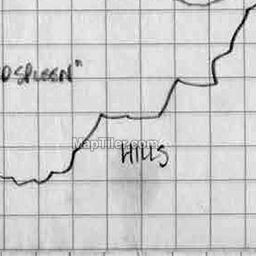 DSPLEEN"
MapTiler.com
HILLS